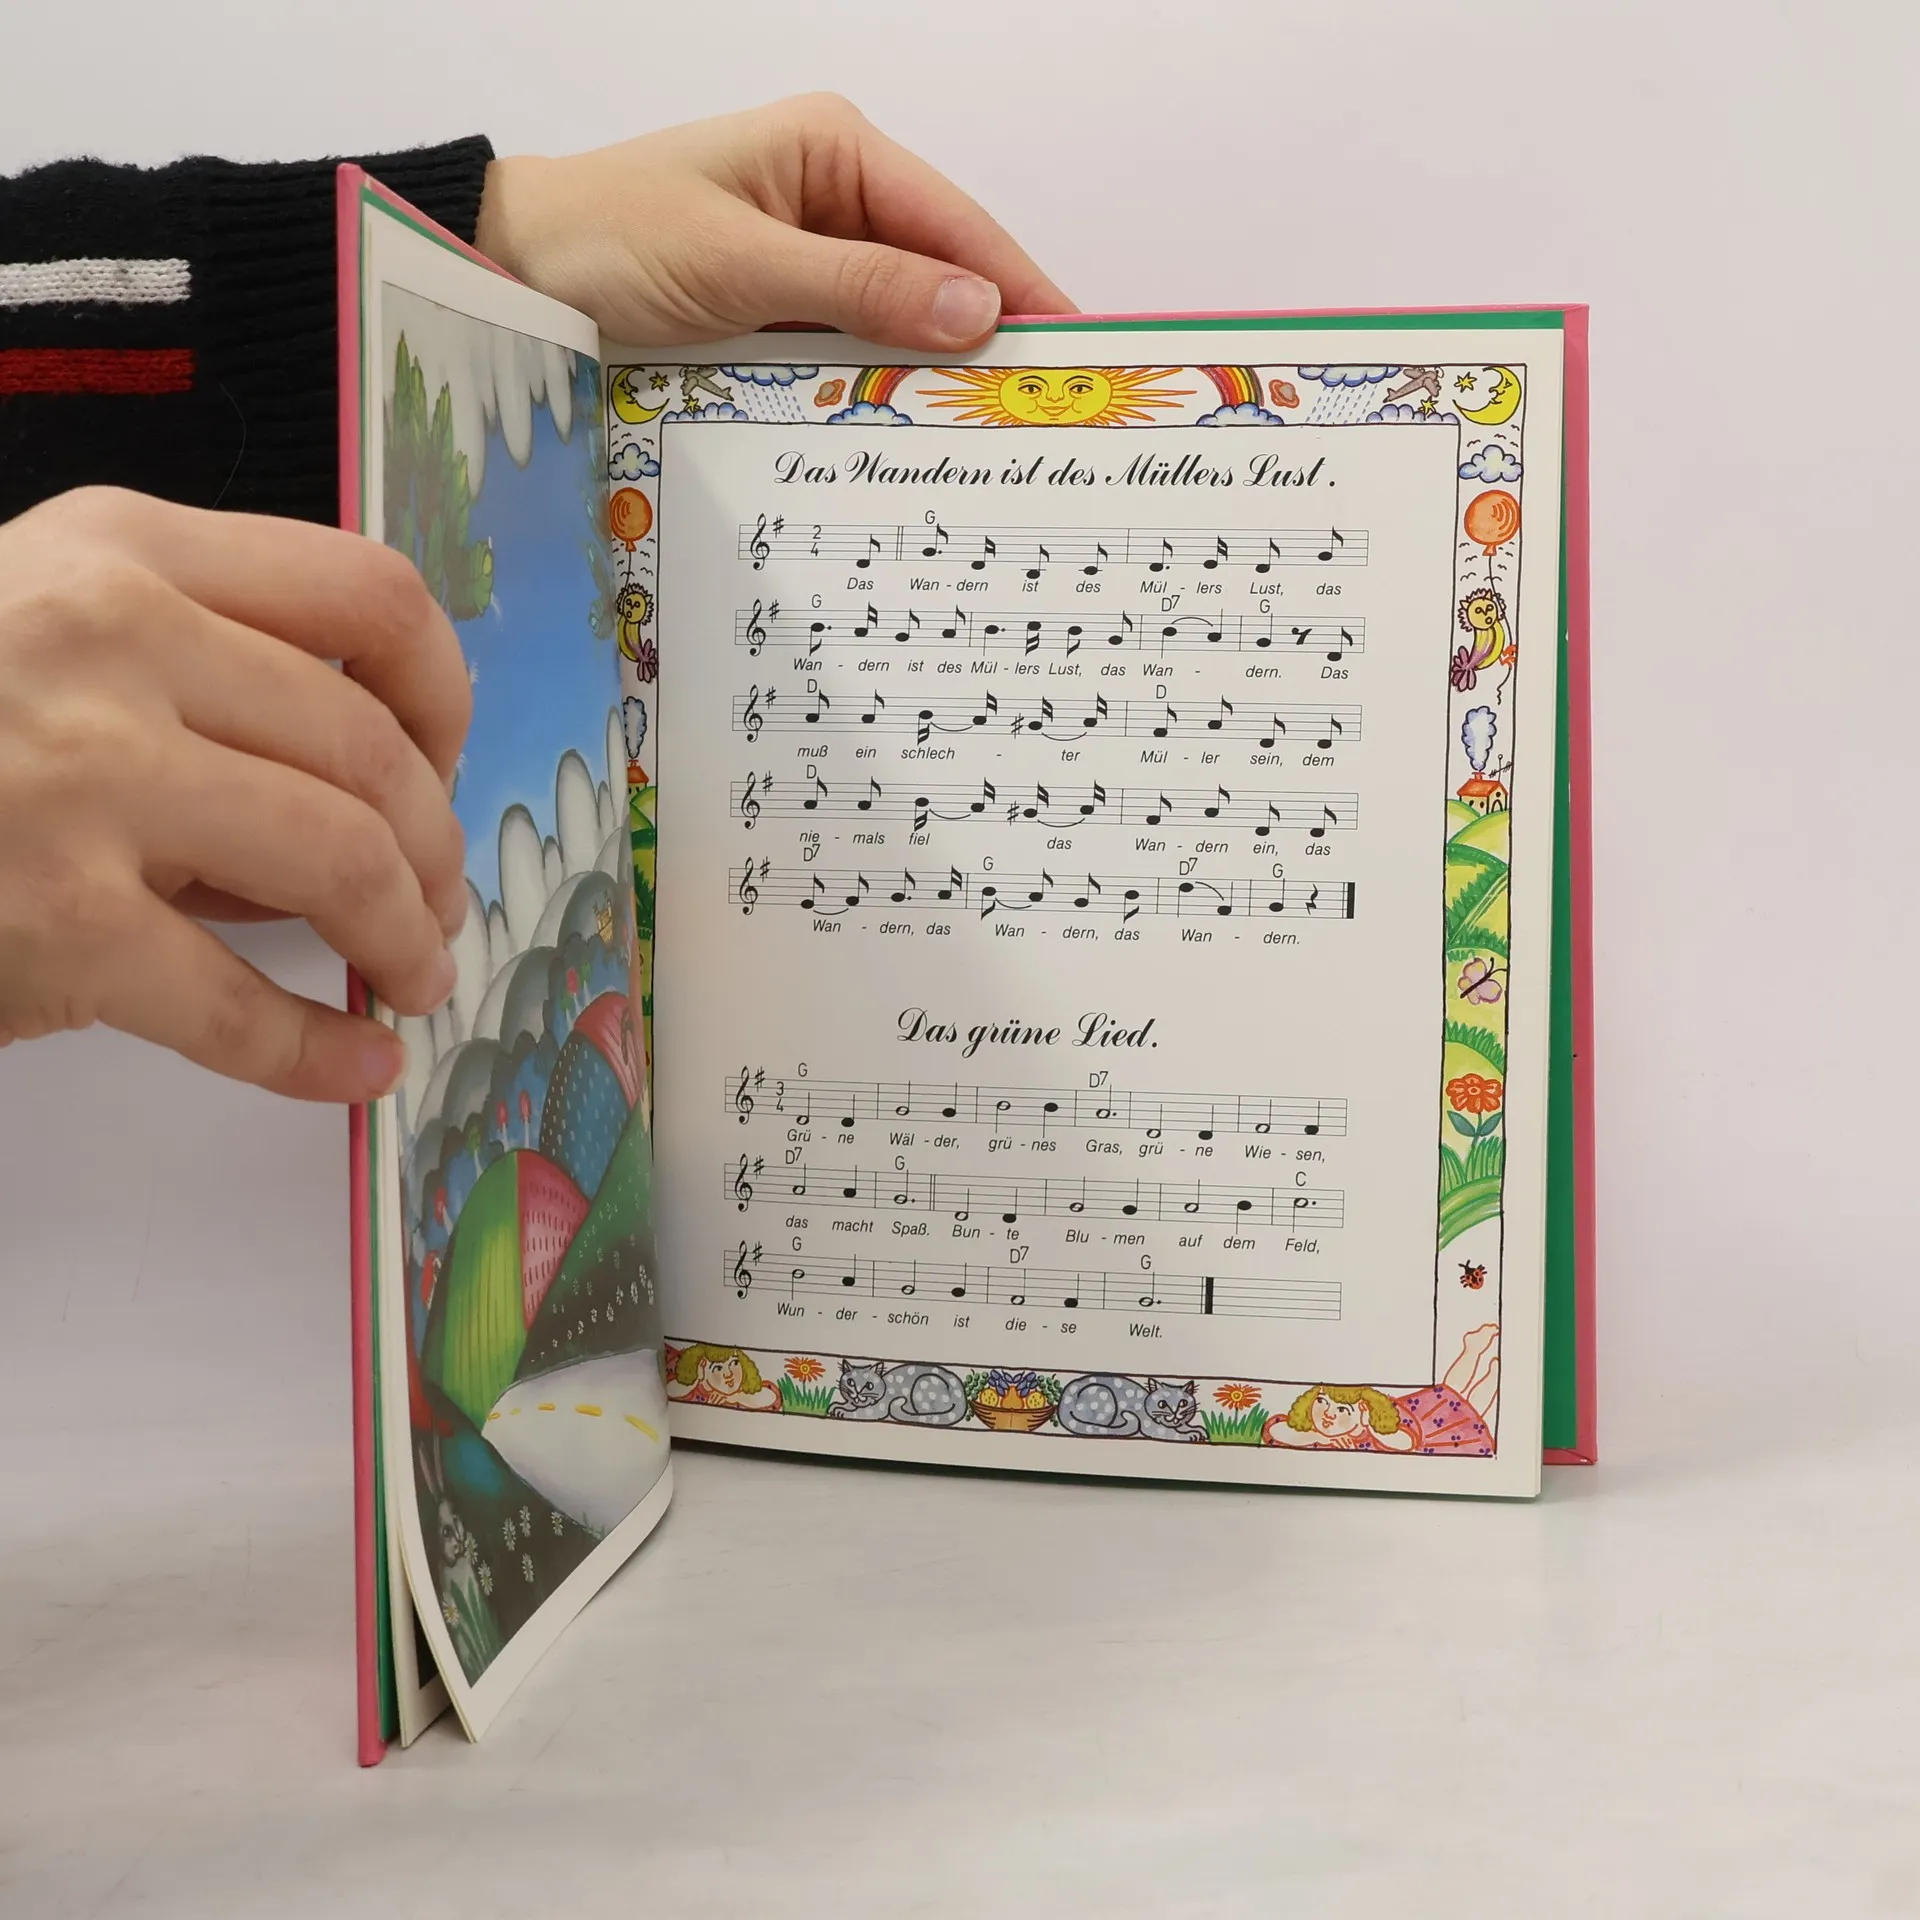 Das Wandern ist des Müllers Lust .
2
4
G
Das Wan - dern ist des Mül - lers Lust, das
G D7 G
Wan - dern ist des Mül - lers Lust, das Wan - dern. Das
D D
muß ein schlech - ter Mül - ler sein, dem
D
nie - mals fiel das Wan - dern ein, das
D7 G D7 G
Wan - dern, das Wan - dern, das Wan - dern.
Das grüne Lied.
3
4
G D7
Grü - ne Wäl - der, grü - nes Gras, grü - ne Wie - sen,
D7 G C
das macht Spaß. Bun - te Blu - men auf dem Feld,
G D7 G
Wun - der - schön ist die - se Welt.